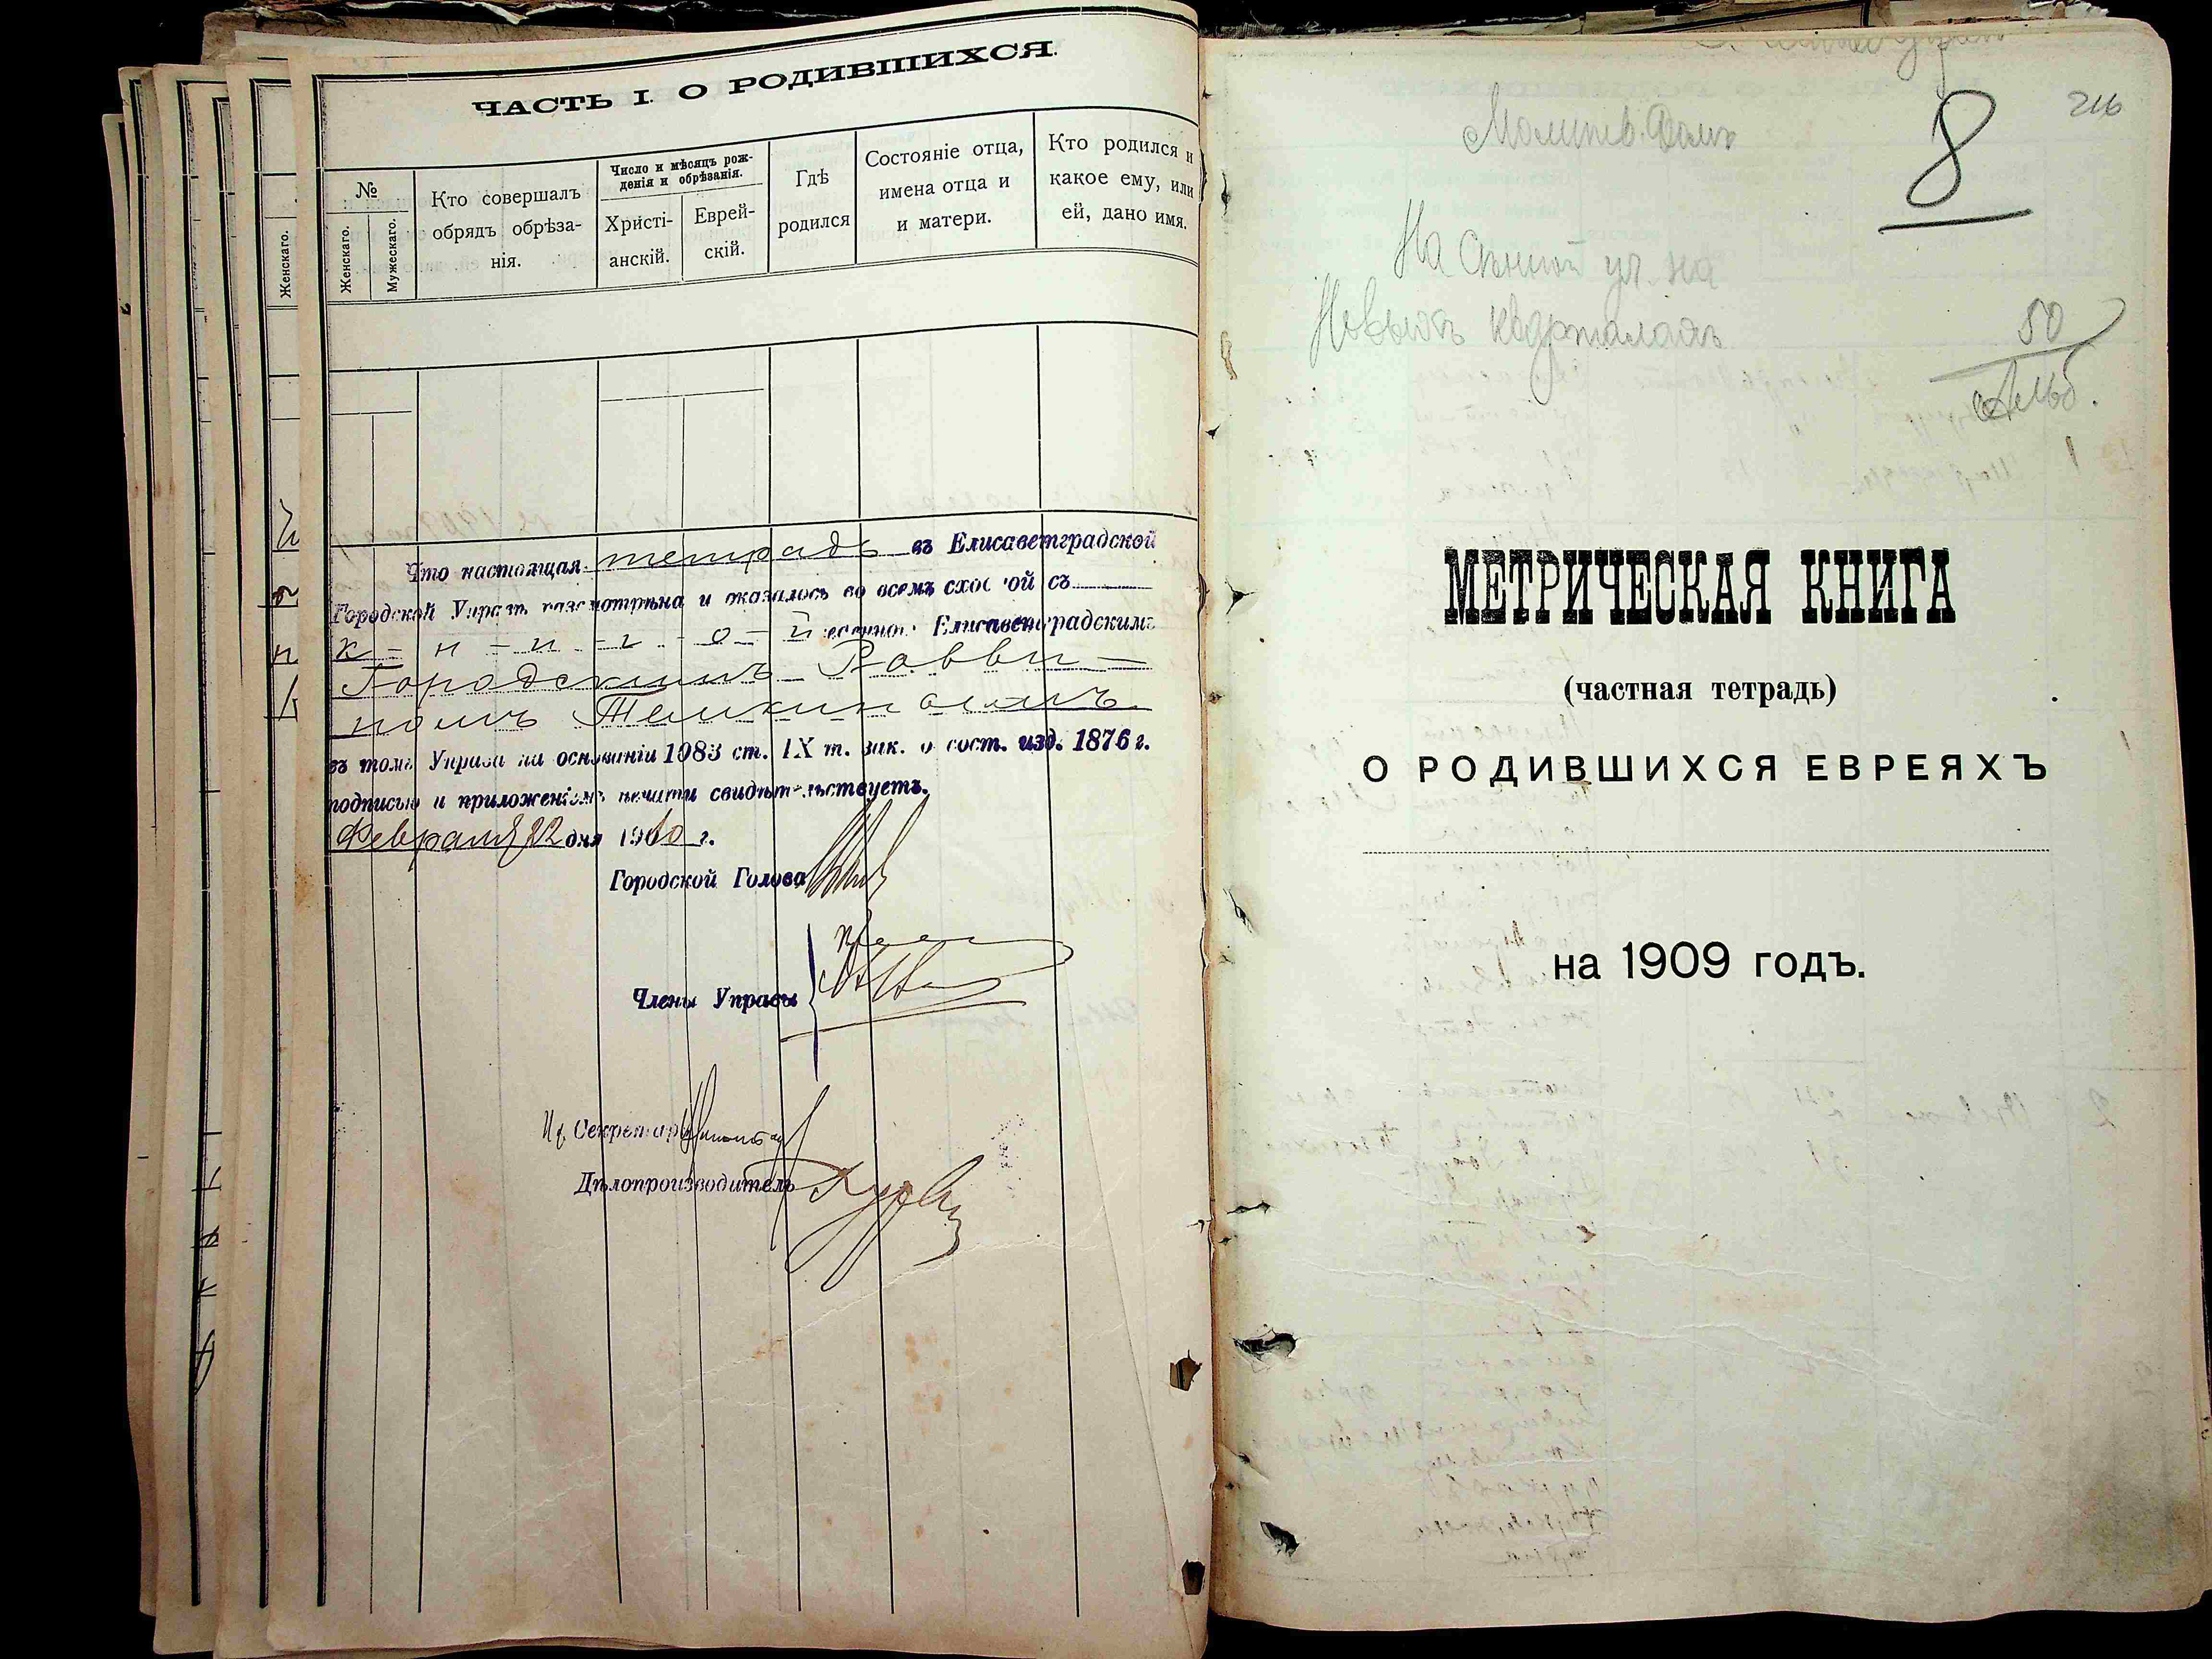 ЧАСТЬ I. О РОДИВШИХСЯ.
№
Женскаго.
Мужескаго.
Кто совершалъ
обрядъ обрѣза-
нія.
Число и мѣсяцъ рож-
денія и обрѣзанія.
Христі-
анскій.
Еврей-
скій.
Гдѣ
родился
Состояніе отца,
имена отца и
и матери.
Кто родился и
какое ему, или
ей, дано имя.
Женскаго.
Что настоящая тетрадь въ Елисаветградской
Городской Управѣ разсмотрѣна и оказалось во всемъ сходной съ
к - н - и - г - о - й Елисаветградскимъ
Городскимъ Равви-
номъ Темкинымъ
въ томъ Управа на основаніи 1083 ст. IX т. зак. о сост. изд. 1876 г.
подписью и приложеніемъ печати свидѣтельствуетъ.
Февраля 22 дня 1910 г.
Городской Голова
Члены Управы
И. д. Секретаря
Дѣлопроизводитель
216
8
Молитв. Домъ
На Сѣнной ул. на
Новыхъ кварталахъ
50
Альб.
МЕТРИЧЕСКАЯ КНИГА
(частная тетрадь)
О РОДИВШИХСЯ ЕВРЕЯХЪ
на 1909 годъ.